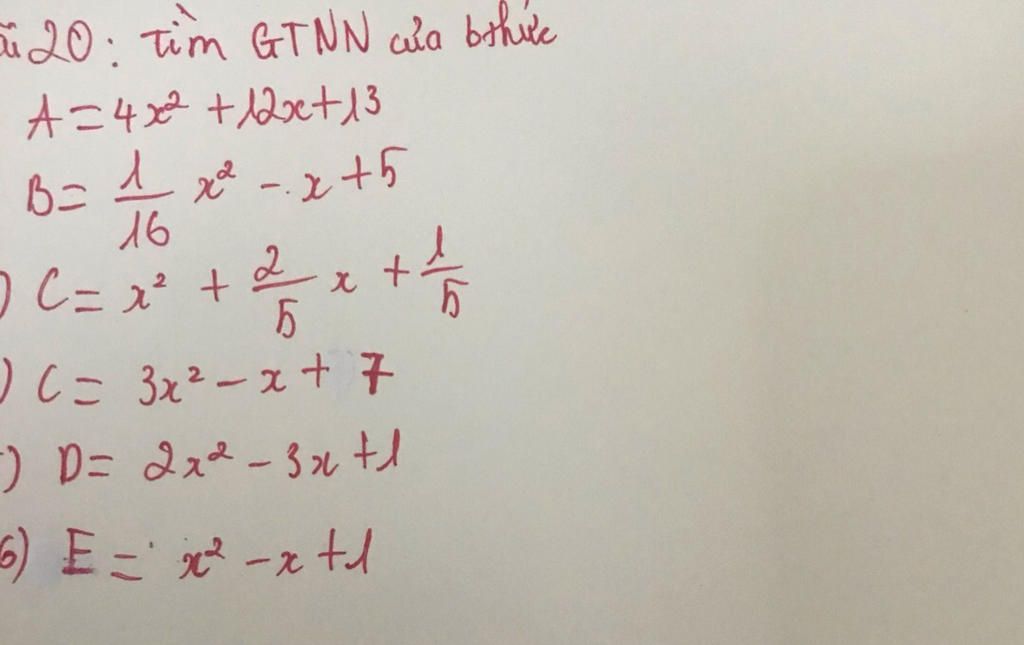 20: Tìm GTNN của bthức
A = 4x² + 12x + 13
B = 1/16 x² - x + 5
) C = x² + 2/5 x + 1/5
) C = 3x² - x + 7
) D = 2x² - 3x + 1
6) E = x² - x + 1